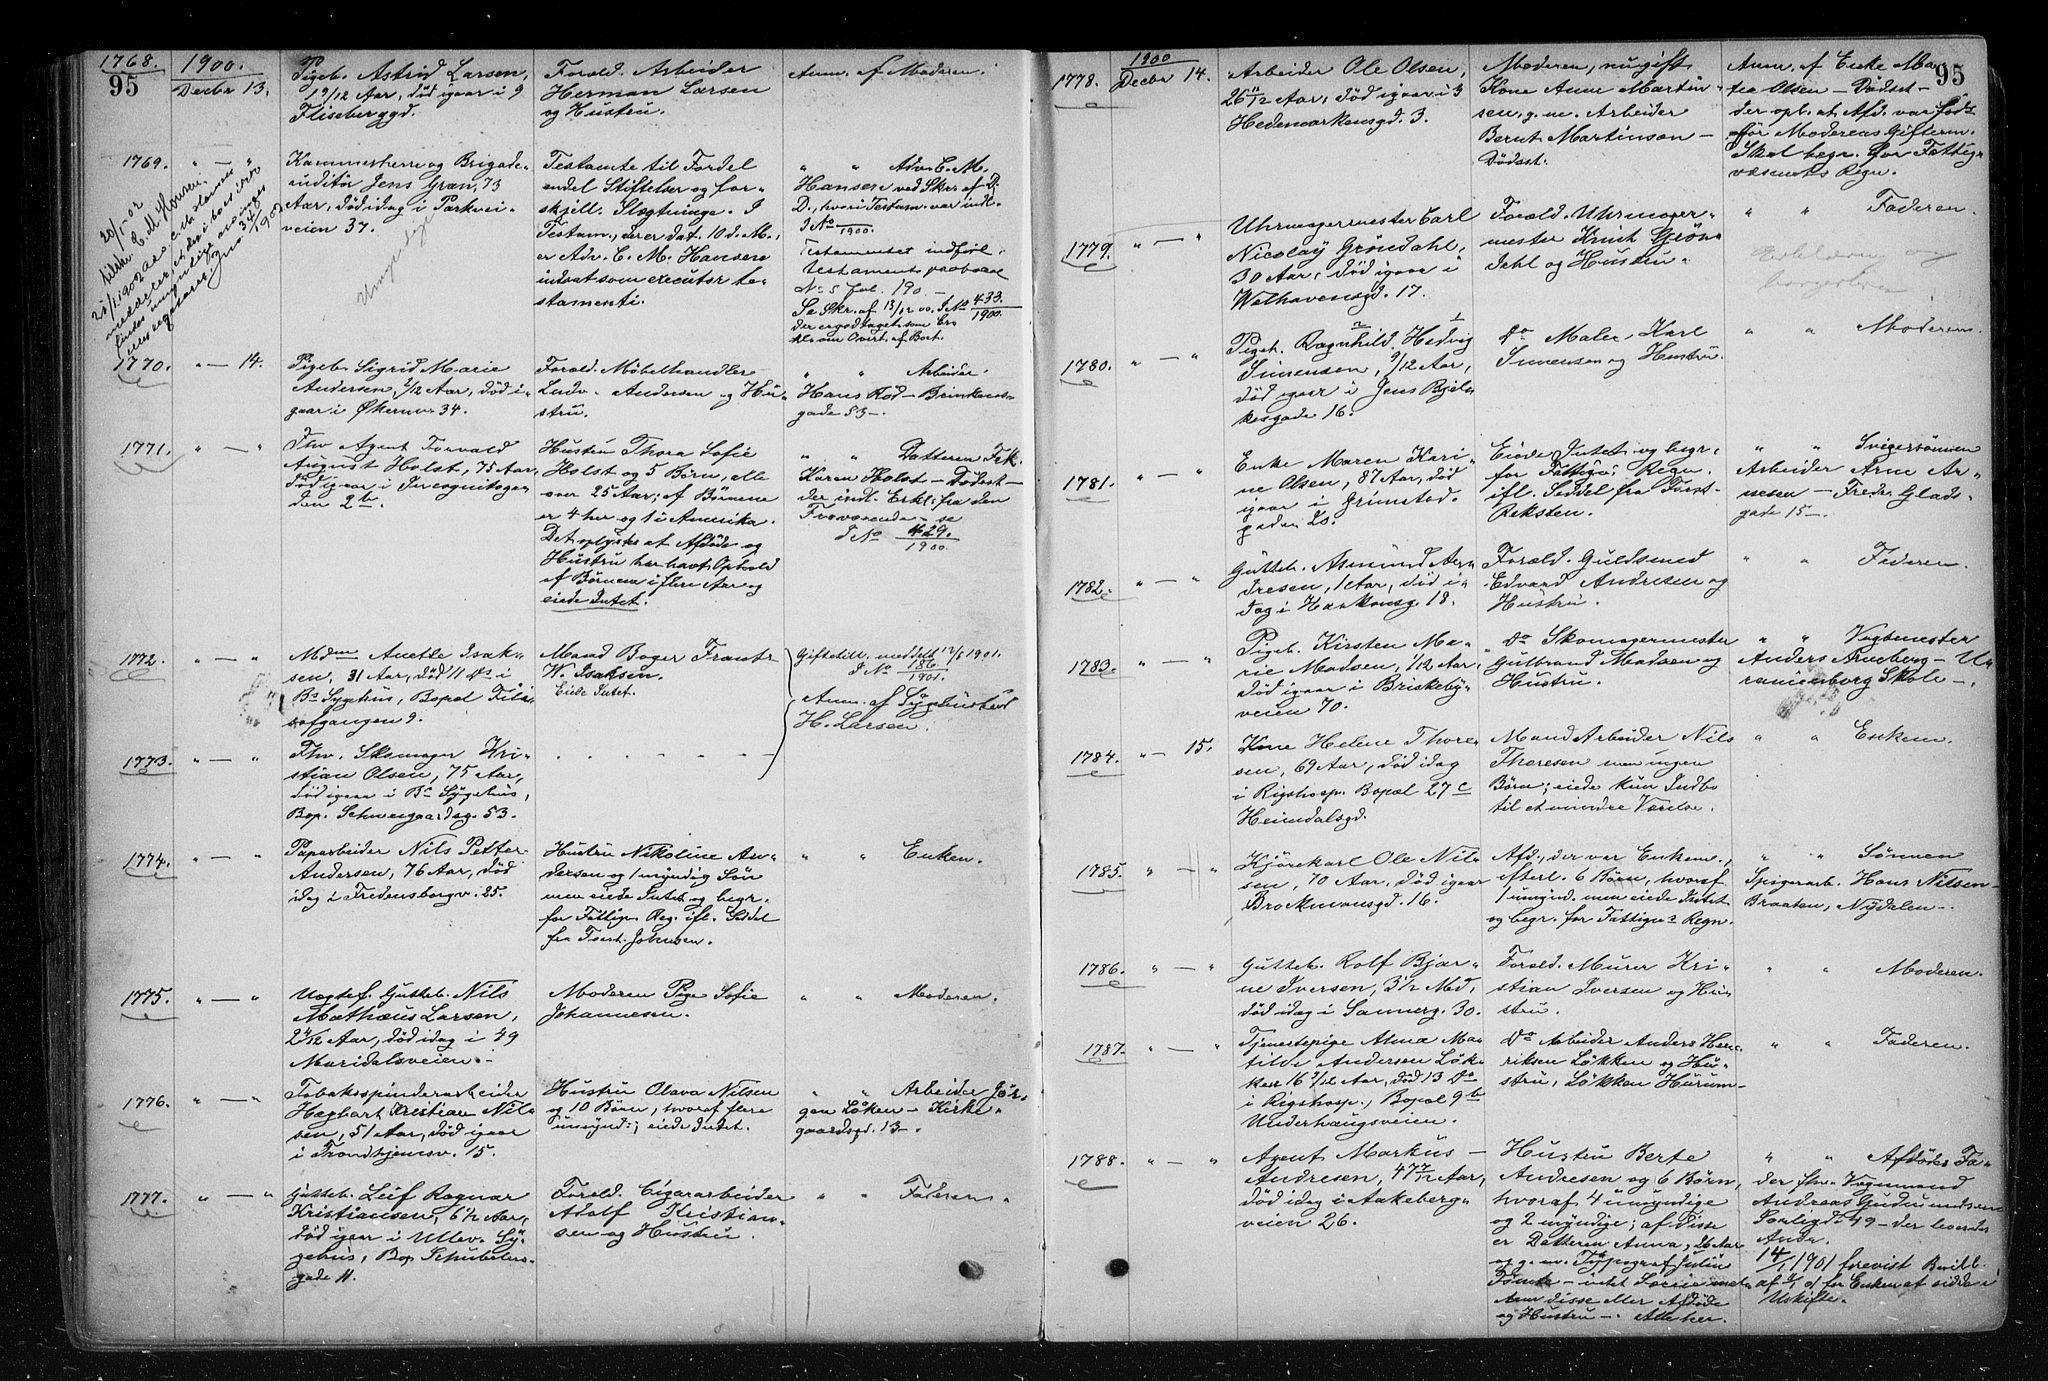 1768.
95
1900.
Decbr 13.
Pigeb. Astrid Larsen,
1 9/12 Aar, död igaar i 9
Flisberggd.
Foræld. Arbeider
Herman Larsen
og Hustru.
Anm. af Moderen.
1769.
" — "
Kammerherre og Brigade-
auditör Jens Gran, 73
Aar, död idag i Parkvei-
veien 37.
Umyndige
Testamte til Fordel
endel Stiftelser og for-
skjell. Slægtninge. I
Testam., der er dat. 10 d. M.,
er Adv. C. M. Hansen
indsat som executor te-
stamenti.
" " Adv. C. M.
Hansen ved Skr. af D.
D., hvori Testam. var indl.
J No /1900.
Testamentet indfört
testaments protocol
No 5 fol. 190 —
Se Skr. af 13/12 00. J No 433/1900.
1770.
" — 14.
Pigeb. Sigrid Marie
Andersen, 2/12 Aar, död i-
gaar i Økernv. 34.
Foræld. Möbelhandler
Ludv. Andersen og Hu-
stru.
" " Arbeider
Hans Rød — Brinkens-
gade 53 —.
1771.
" — "
Fhv Agent Torvald
August Holst, 75 Aar,
död igaar i Incognitoga-
den 2b.
Hustru Thora Sofie
Holst og 5 Börn, alle
over 25 Aar; af Börnene
er 4 her og 1 i Amerika.
Det oplystes at Afdöde og
Hustru har havt Ophold
af Börnene i flere Aar og
eiede Intet.
" " Datteren Frk.
Karen Holst — Dödsat-
der indl. Erkl. fra den
Fraværende — se
J No 429./1900.
1772.
" — "
Mdm Anette Isak-
sen, 31 Aar, död 11 Ds i
Bs Sygehus, Bopæl Filo-
sofgangen 9.
Mand Boger Frantz
W. Isaksen.
Eiede Intet.
Giftetill. meddelt 12/6 1901.
J No 186/1901.
Anm. af Sygehusfuld
H. Larsen.
1773.
" — "
Fhv. Skomager Kri-
stian Olsen, 75 Aar,
död igaar i Bs Sygehus,
Bop. Schweigaardsg. 53.
1774.
" — "
Paparbeider Nils Petter
Andersen, 76 Aar, död
idag i Fredensborgv. 25.
Hustru Nikoline An-
dersen og 1 myndig Søn
men eiede Intet og begr.
for Fattigv. Reg. ifl. Seddel
fra Forst. Johnsen.
" " Enken.
1775.
" — "
Uægtef. Gutteb. Nils
Mathæus Larsen,
2 4/12 Aar, död idag i 49
Maridalsveien.
Moderen Pige Sofie
Johannesen.
" " Moderen.
1776.
" — "
Tobaksspinderarbeider
Hæghart Kristian Nil-
sen, 51 Aar, död igaar
i Trondhjemsv. 15.
Hustru Olava Nilsen
og 10 Börn, hvoraf flere
umynd.; eiede Intet.
" " Arbeider Jör-
gen Løken — Kirke-
gaardsgd. 13 —.
1777.
" — "
Gutteb. Leif Ragnar
Kristiansen, 6 1/2 Aar,
död igaar i Ullev. Sy-
gehus, Bop. Schubelers-
gade 11.
Foræld. Cigararbeider
Adolf Kristian-
sen og Hustru.
" " Faderen.
1778.
1900
Decbr 14.
Arbeider Ole Olsen,
26 11/12 Aar, död igaar i 3
Hedemarkensgd. 3.
Moderen, nugift
Kone Anne Martin-
sen, g. m. Arbeider
Bernt Martinsen —
Dödsat.
Anm. af Enke Ma-
Olsen — Dödsat —
der opl. at Afd. var född
för Moderens Gifterm.
Skal begr. for Fattig-
væsenets Regn.
95
1779.
" — "
Uhrmagermester Carl
Nicolay Gröndahl,
30 Aar, död igaar i
Welhavensgd. 17.
Foræld. Uhrmager-
mester Knut Grön-
dahl og Hustru.
" " Faderen.
Erklæring og
1780.
" — "
Pigeb. Ragnhild Hedvig
Simensen, 9/12 Aar,
död igaar i Jens Bjel-
kesgade 16.
Do Maler Karl
Simensen og Hustru.
" " Moderen.
1781.
" — "
Enke Maren Kari-
ne Olsen, 87 Aar, död
igaar i Grimstad-
gaden 20.
Eiede Intet og begr.
for Fattigv. Regn.
ifl. Seddel fra Forst.
Reksten.
" " Svigersönnen
Arbeider Arne Ar-
nesen — Freder. Glads-
gade 15 —.
1782.
" — "
Gutteb. Asmund An-
dresen, 1 Aar, död i-
dag i Haakonsg. 18.
Foræld. Guldsmed
Edvard Andresen og
Hustru.
" " Faderen.
1783.
" — "
Pigeb. Kirsten Ma-
rie Madsen, 1/12 Aar,
död igaar i Briskeby-
veien 70.
Do Skomagermester
Gulbrand Madsen og
Hustru.
" " Vagtmester
Anders Arneberg — U-
ranienborg Skole —.
1784.
" — 15.
Kone Helene Thore-
sen, 69 Aar, död idag
i Rigshosp. Bopæl 27c
Heimdalsgd.
Mand Arbeider Nils
Thoresen men ingen
Börn; eiede kun Indbo
til et mindre Værelse.
" " Enkem.
1785.
" — "
Kjörekarl Ole Nil-
sen, 70 Aar, död igaar
Brockmansgd. 16.
Afd., der var Enkem.,
efterl. 6 Börn, hvoraf
1 umynd. men eiede Intet
og begr. for Fattigv.s Regn.
" " Sönnen
Spigerarb. Hans Nilsen-
Braaten, Nydalen —.
1786.
" — "
Gutteb. Rolf Bjar-
ne Iversen, 3 1/2 Md,
död idag i Sannerg. 30.
Foræld. Murer Kri-
stian Iversen og Hu-
stru.
" " Moderen.
1787.
" — "
Tjenestepige Alma Ma-
tilde Andersen Løk-
ken 16 9/12 Aar, död 13 Ds
i Rigshosp., Bopæl 9b
Underhaugsveien.
Do Arbeider Anders Hen-
riksen Løkken og Hu-
stru, Løkken Hurum —
" " Faderen.
1788.
" — "
Agent Markus —
Andresen, 47 7/12 Aar,
död idag i Aakeberg-
veien 26.
Hustru Berte
Andresen og 6 Börn,
hvoraf 4 umyndige
og 2 myndige; af disse
er Datteren Anna, 26 Aar
og g. m. Typograf Julius
Tømte — intet Særeie mel-
lem disse eller Afdöde
og Hustru —. Alle her.
" " Afdödes Fa-
der fhv. Vognmand
Andreas Gudmundsen
Sorligd. 49 — der levendes
Ande.
14/1 1901 forevist Bevill.
af 9/1 01 for Enken at sidde i
Uskifte.